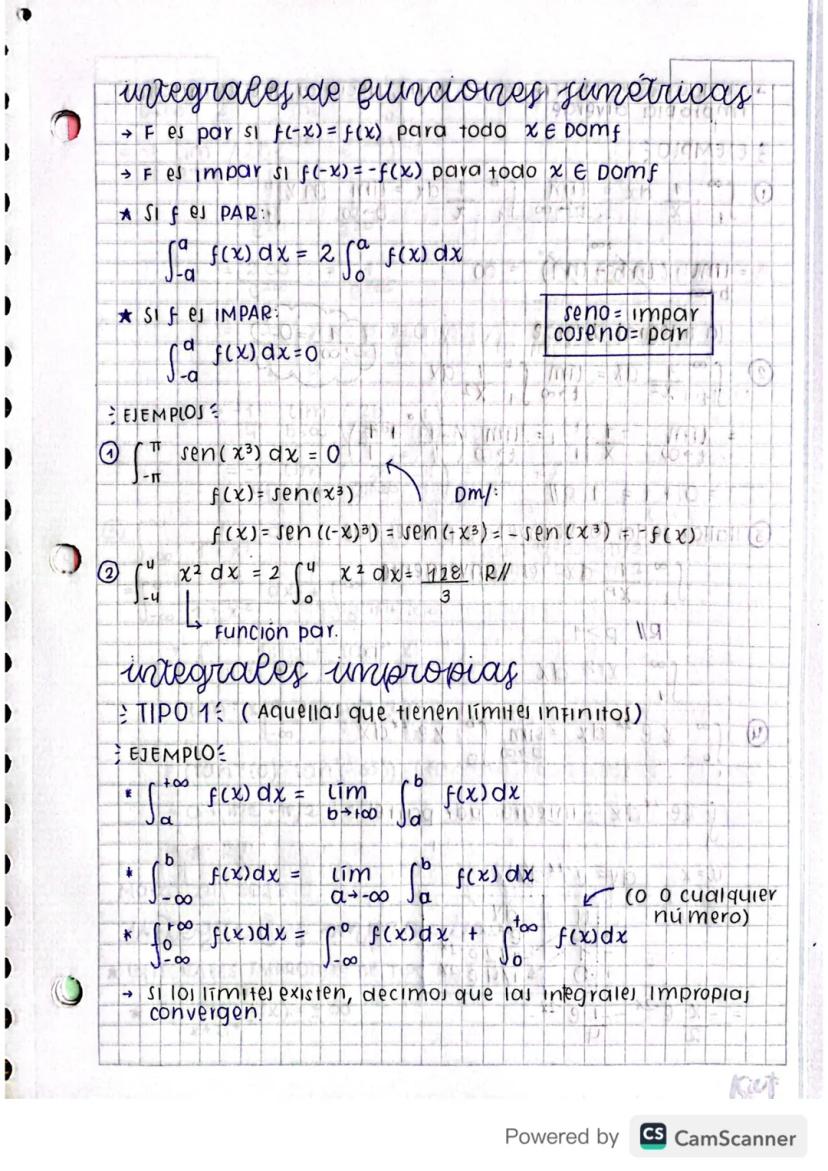 integrales de funciones simétricas
→ F es par si f(-x) = f(x) para todo x ∈ Domf
→ F es impar si f(-x) = -f(x) para todo x ∈ Domf
★ Si f es PAR:
∫_{-a}^{a} f(x) dx = 2 ∫_{0}^{a} f(x) dx
★ Si f es IMPAR:
∫_{-a}^{a} f(x) dx = 0
seno = impar
coseno = par
EJEMPLOS
① ∫_{-π}^{π} sen(x³) dx = 0
f(x) = sen(x³)
Dm/:
f(x) = sen((-x)³) = sen(-x³) = - sen(x³) = -f(x)
② ∫_{-4}^{4} x² dx = 2 ∫_{0}^{4} x² dx = 128/3 R//
Función par.
integrales impropias
TIPO 1 (Aquellas que tienen límites infinitos)
EJEMPLO
* ∫_{a}^{+∞} f(x) dx = lím_{b→+∞} ∫_{a}^{b} f(x) dx
* ∫_{-∞}^{b} f(x) dx = lím_{a→-∞} ∫_{a}^{b} f(x) dx
(0 o cualquier
número)
* ∫_{-∞}^{+∞} f(x) dx = ∫_{-∞}^{0} f(x) dx + ∫_{0}^{+∞} f(x) dx
→ si los límites existen, decimos que las integrales impropias
convergen.
Powered by CS CamScanner